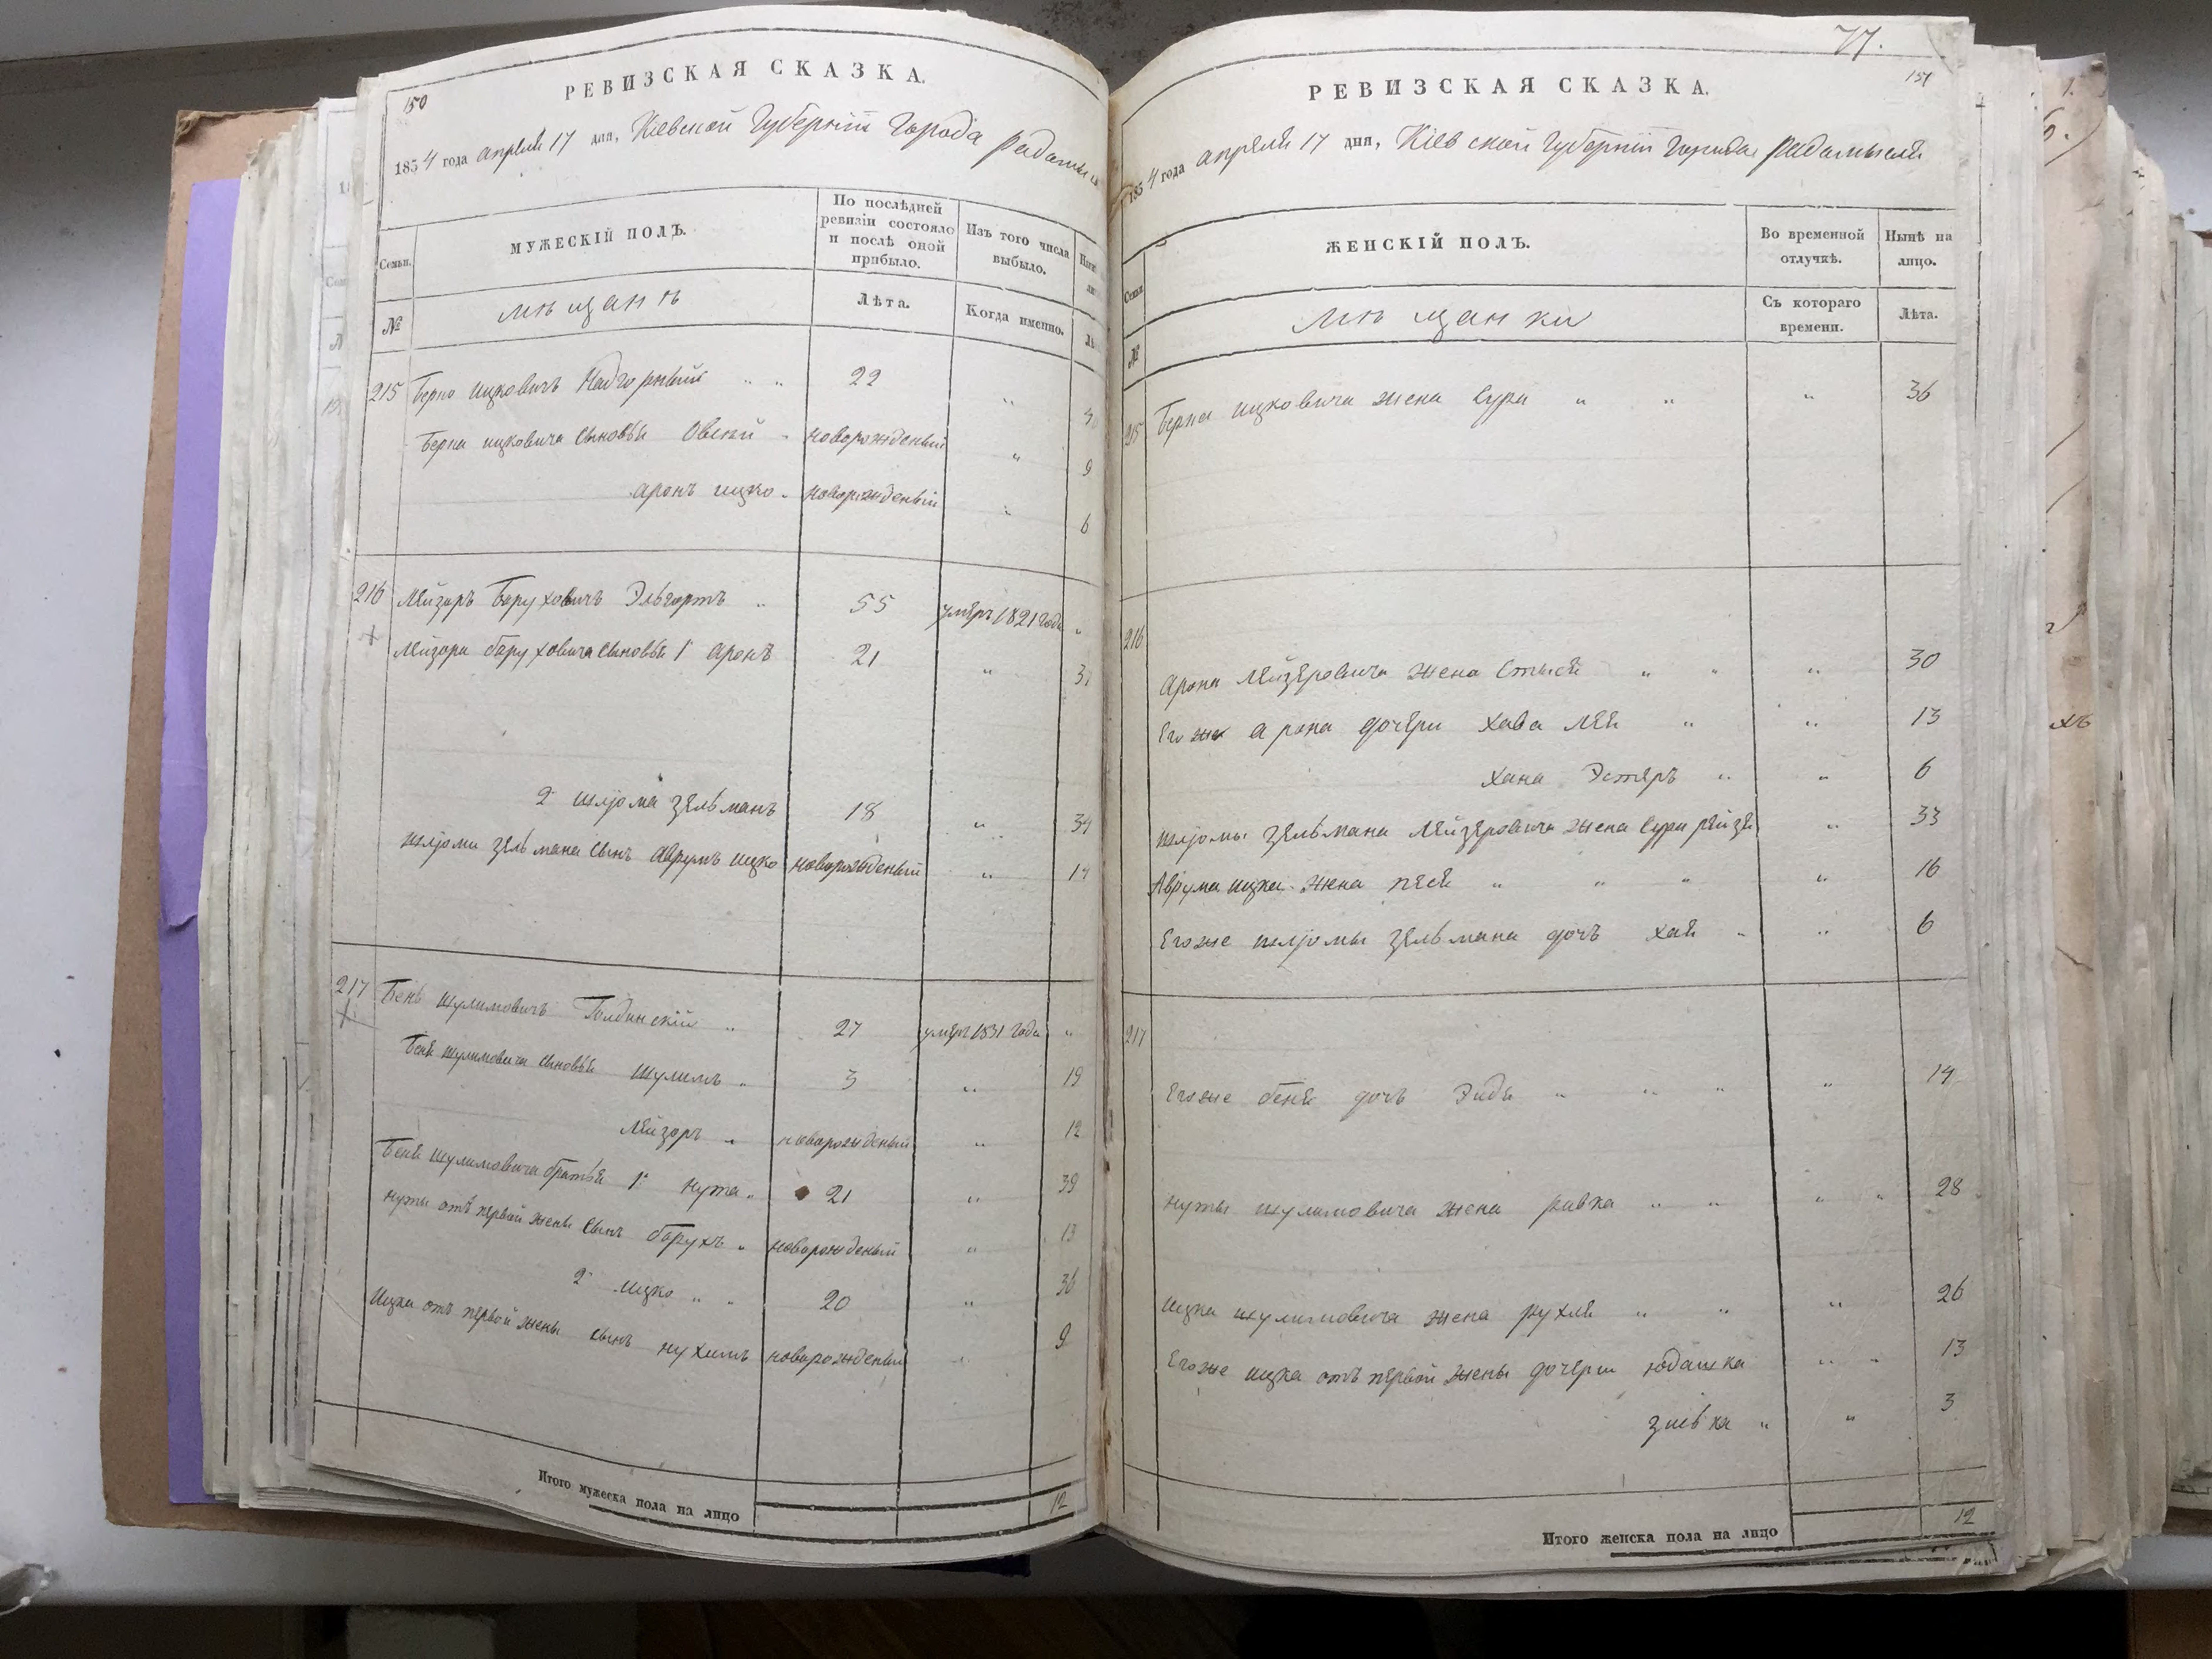 150
РЕВИЗСКАЯ СКАЗКА.
1854 года апреля 17 дня, Кіевской Губерніи Города Радомысля
Семьи.
МУЖЕСКІЙ ПОЛЪ.
По послѣдней ревизіи состояло и послѣ оной прибыло.
Изъ того числа выбыло.
№
мѣщанъ
Лѣта.
Когда именно.
215 Берко Ицковичъ Надгорный " " 22 "
Берка ицковича сыновья Овсей " новорожденый " 9
Аронъ ицко " новорожденый " 6
216 Лейзоръ Боруховичъ Эльгортъ " 55 умеръ 1821 года "
Лейзора боруховича сыновья 1й Аронъ 21 "
2й Шлюма Зельманъ 18 " 34
шлюмы зельмана сынъ Аврумъ ицко новорожденый " 14
217 Беня Шулимовичъ Голдинскій " 27 умеръ 1831 года "
Бени шулимовича сыновья Шулимъ " 3 " 19
Лейзоръ " новорожденый " 12
Бени шулимовича братья 1й нута " 21 " 39
нуты отъ первой жены сынъ борухъ " новорожденый " 13
2й ицко " " 20 " 36
Ицка отъ первой жены сынъ нухимъ новорожденый " 9
Итого мужеска пола на лицо 12
77.
151
РЕВИЗСКАЯ СКАЗКА.
1854 года апреля 17 дня, Кіевской Губерніи города Радомысля
Семьи.
ЖЕНСКІЙ ПОЛЪ.
Во временной отлучкѣ.
Нынѣ на лицо.
№
мѣщанки
Съ котораго времени.
Лѣта.
215 Берка ицковича жена Сура " " " 36
216
Арона Лейзеровича жена Стыся " " " 30
Его же Арона дочери Хава Лея " " 13
Хана Эстеръ " " 6
шлюмы зельмана Лейзеровича жена Сура рейзя " 33
Аврума ицка жена песя " " " " 16
Его же шлюмы зельмана дочь хая " " 6
217
Его же бени дочь Эидя " " " " 14
нуты шулимовича жена ривка " " " " 28
Ицка шулимовича жена рухля " " " 26
Его же ицка отъ первой жены дочери юдашка " " 13
зивка " " 3
Итого женска пола на лицо 12